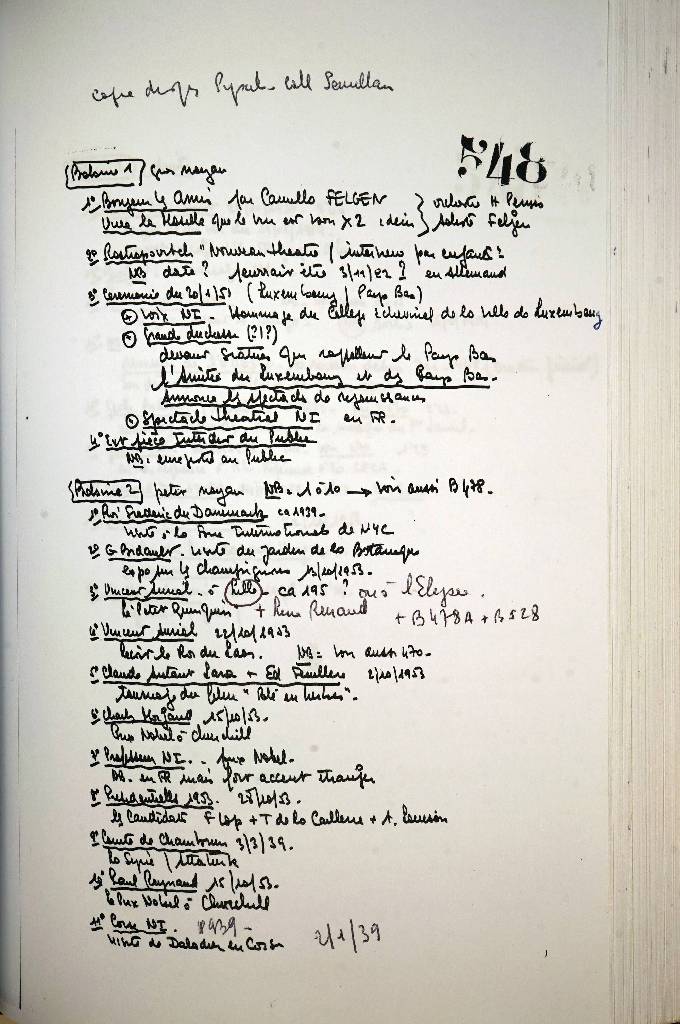 548
Bobine 1
1° Bonjour les Amis par Camillo FELGEN } orchestre H Pensis
Vive la Moselle que le vin est bon X2 idem } soliste Felgen
2° Rostropovitch "Nouveau theatre / interview par enfants ?
NB date ? pourrait être 3/11/82 ? en Allemand
3° Ceremonie du 20/1/51 (Luxembourg / Pays Bas)
Voix NI - Hommage du College Echevinal de la Ville de Luxembourg
Grande duchesse (?!?)
devant statues qui rappellent les Pays Bas
l'Amitié du Luxembourg et des Pays Bas.
Annonce les spectacles de rejouissances
Spectacle theatral NI en FR.
4° Ext pièce Interdit au Public
NB: enregistré au Public
Bobine 2 NB = 1 à 10 → voir aussi B478.
1° Roi Frederic du Danemark ca 1939.
Visite à la Foire Internationale de NYC
2° G Bidault. visite du Jardin de la Botanique
expo sur les champignons 13/10/1953.
3° Vincent Auriol. à Lille ca 195 ? ou à l'Elysee.
le P'tit Quinquin + Line Renaud + B478A + B528
4° Vincent Auriol 22/10/1953
Reçoit le Roi du Laos. NB = Voir aussi 470.
5° Claude Autant Lara + Ed Feuillere 2/10/1953
Tournage du film "Blé en herbe".
6° Charles Morgand 15/10/53.
Prix Nobel à Churchill
7° Professeur NI. - prix Nobel.
NB. en FR mais fort accent étranger
8° Presidentielle 1953. 28/10/53.
les Candidats
9° Comte de Chambrun 3/3/39.
La Syrie / Attaturk
10° Paul Raynaud 15/10/53.
le Prix Nobel à Churchill
11° Corse NI. 1939 -
visite de Daladier en Corse 2/1/39